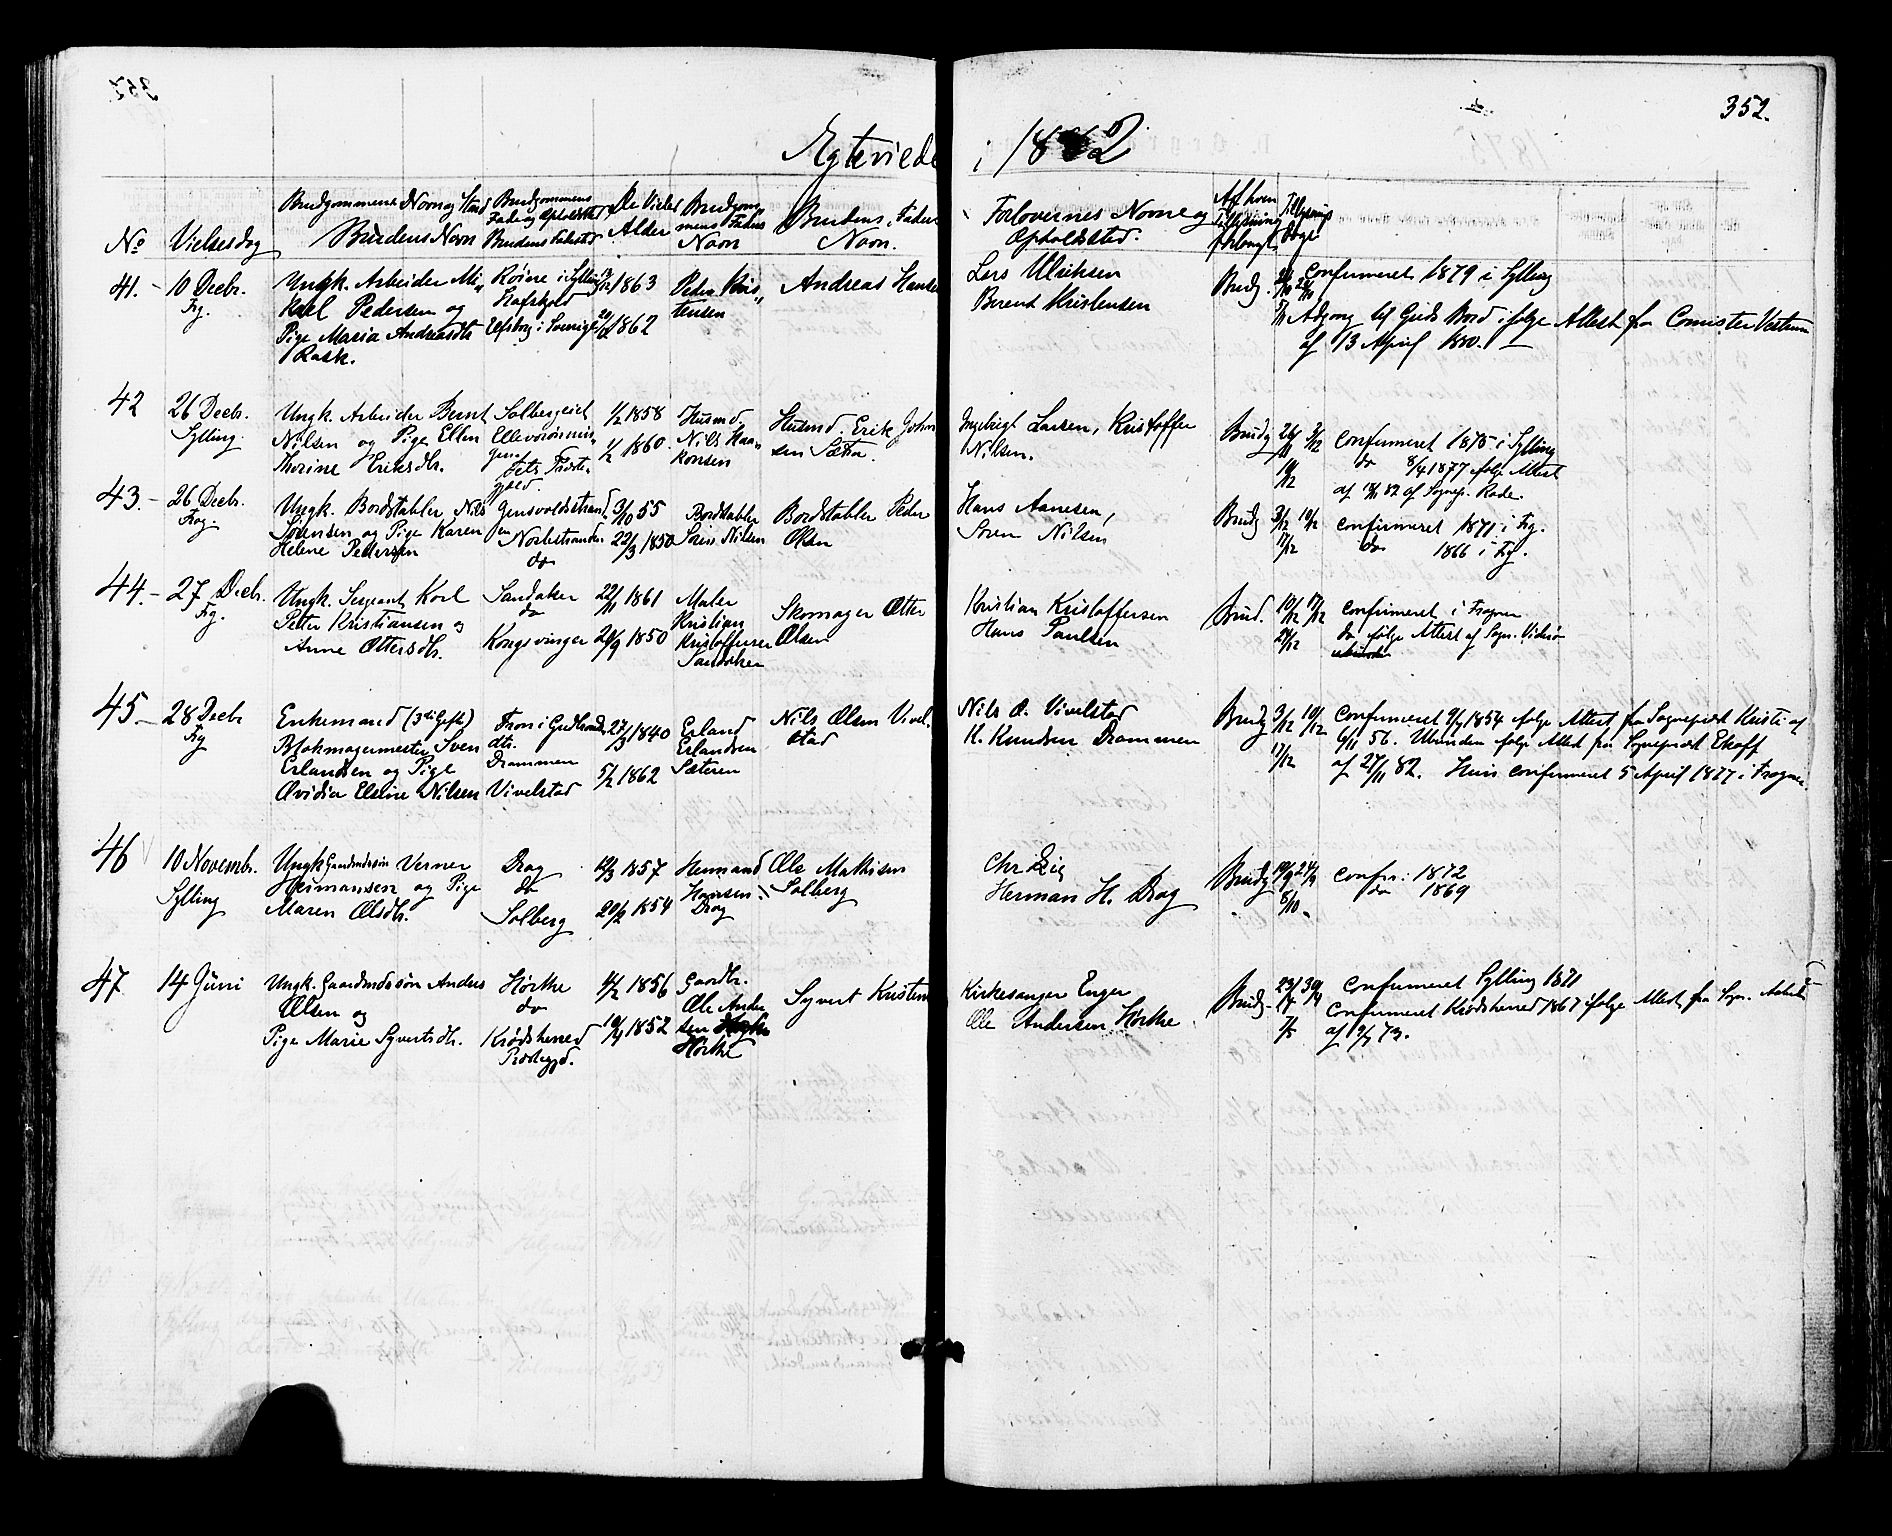 352.
Egteviede i 1882
No
Vielsesdag
Brudgommens Navn og Stand
Brudens Navn
Brudgommens Fødeog Opholdssted
Brudens Fødested
De Viedes Alder
Brudgommens Faders Navn
Brudens Faders Navn.
Forlovernes Navne og Opholdssted.
Af hvem Tillysning forlangt
Tillysnings Dage
41. - 10 Decbr. Frg.
Ungk. Arbeider Mi„
kael Pedersen og
Pige Maria Andreasdtr
Rask.
Røine i Sylling
Hafskjold
Elfsborg i Sverige
1863
1862
Peder Kris„
tensen
Andreas Hansen
Lars Ulriksen
Berent Kristensen
Brudg.
Confirmeret 1879 i Sylling
Adgang til Guds Bord ifølge Attest fra Comister Vestrum
af 13 April 1880.
42
26 Decbr.
Sylling.
Ungk. Arbeider Bernt
Nilsen og Pige Ellen
Thorine Eriksdtr.
Solbergeiet
1/2 1858
1/2 1860.
Husmd.
Nils Haa„
konsen
Husmd. Erik Johan
sen Sætra.
Ingebrigt Larsen, Kristoffer
Nilsen.
Brudg
Confirmeret 1875 i Sylling
do 8/4 1877 følge Attest
af 18/11 82 af Sognep. Rode.
43. -
26 Decbr.
Frog.
Ungk. Bordstabler Nils
Sørensen og Pige Karen
Helene Pedersen
Gjensvoldstrand
en
Nordstranden
do
3/10 55
22/3 1850
Bordstabler
Sørn. Nilsen
Bordstabler Peder
Olsen
Hans Aanesen,
Soren Nilsen
Brudg 3/12 10/12
17/12
confirmeret 1871 i Frg.
do 1866 i Frg.
44. -
27 Decbr.
Frg.
Ungk. Sergeant Karl
Petter Kristiansen og
Anne Ottersdtr.
Sandaker
do
Kongsvinger
22/11 1861
20/9 1850
Maler
Kristian
Kristoffersen
Sandaker
Skomager Otter
Olsen
Kristian Kristoffersen
Hans Paulsen
Brud. 10/12 17/12
24/12
confirmeret i Frogner
do følge Attest af Sogn.
45 -
28 Decbr
Frg
Enkemand (3die Gifte)
Blokmagermester Sven
Erlandsen og Pige
Ovidia Elsine Nilsen
Fron i Gudbrands
dtr.
Drammen
Vivelstad
27/3 1840
5/2 1862
Erland
Erlandsen
Sæteren
Nils Olsen Vivel.
stad
Nils O. Vivelstad
K. Knudsen Drammen
Brudg 3/12 10/12
17/12
Confirmeret 9/7 1854 ifølge Attest fra Sognepræst Kristi af
6/11 56. Ubunden følge Attest fra Sognepræst Ekoff
af 27/11 82. Hun confirmeret 5 April 1877 i Frogner.
46
10 Novembr.
Sylling
Ungk Gaardmdssøn Verner
Heimansen og Pige
Maren Olsdtr.
Drag
do
Solberg
12/3 1857
20/2 1854
Hermand
Hansen
Drag
Ole Mathisen
Solberg
Chr Lie
Herman H. Drag
Brudg
8/10
confir: 1872
do 1869
47
14 Juni
Ungk. Gaardmdssøn Anders
Olsen og
Pige Marie Syvertsdtr.
Hørthe
do
Krødsherred
Præstegjd.
11/2 1856
10/4 1852
Gaardbr.
Ole Ander
sen
Hørthe
Syvert Kristens
Kirkesanger Enger
Ole Andersen Hørthe
Brudg. 23/4 30/4
7/5
Confirmeret Sylling 1871
Confirmeret Krødsherred 1867 ifølge Attest fra Sogn.
af 9/7 73.